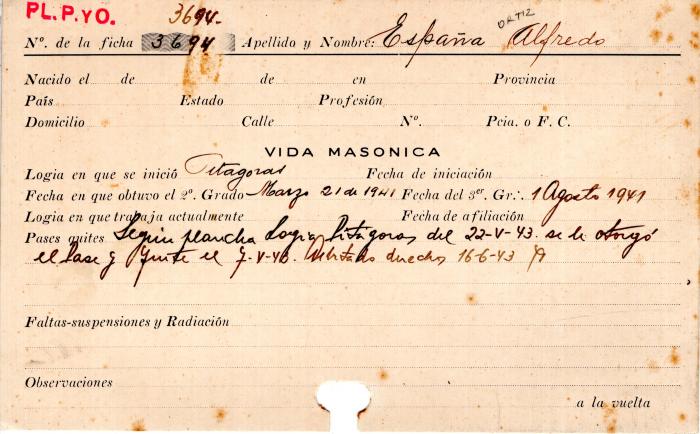 PL.P.yO. 3694-
ORTIZ
Nº. de la ficha 3694 Apellido y Nombre: España Alfredo
Nacido el de de en Provincia
País Estado Profesión
Domicilio Calle Nº. Pcia. o F. C.
VIDA MASONICA
Logia en que se inició Pitagoras Fecha de iniciación
Fecha en que obtuvo el 2º. Grado Marzo 21 de 1941 Fecha del 3er. Gr∴ 1 Agosto 1941
Logia en que trabaja actualmente Fecha de afiliación
Pases quites Según plancha Logia Pitágoras del 22-V-43. se le otorgó
el Pase y Quite el 7-V-43. derechos 16-6-43
Faltas-suspensiones y Radiación
Observaciones
a la vuelta